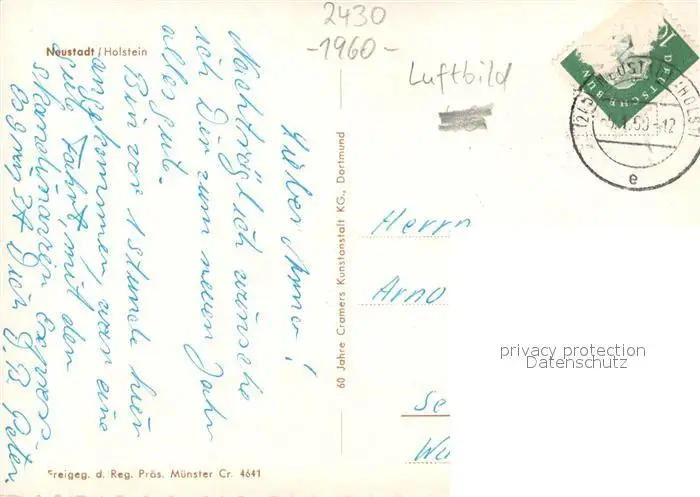 2430
-1960-
Neustadt / Holstein
Luftbild
Lieber Arno!
Nachträglich wünsche
ich Dir zum neuen Jahr
alles gute.
Bin vor 1 stunde hier
angekommen, war eine
gute Fahrt, mit den
skandinavien Express
es grüßt Dich Peter.
60 Jahre Cramers Kunstanstalt KG., Dortmund
Freigeg. d. Reg. Präs. Münster Cr. 4641
DEUTSCHE BUN
10
e
Herrn
Arno
Se
privacy protection
Datenschutz